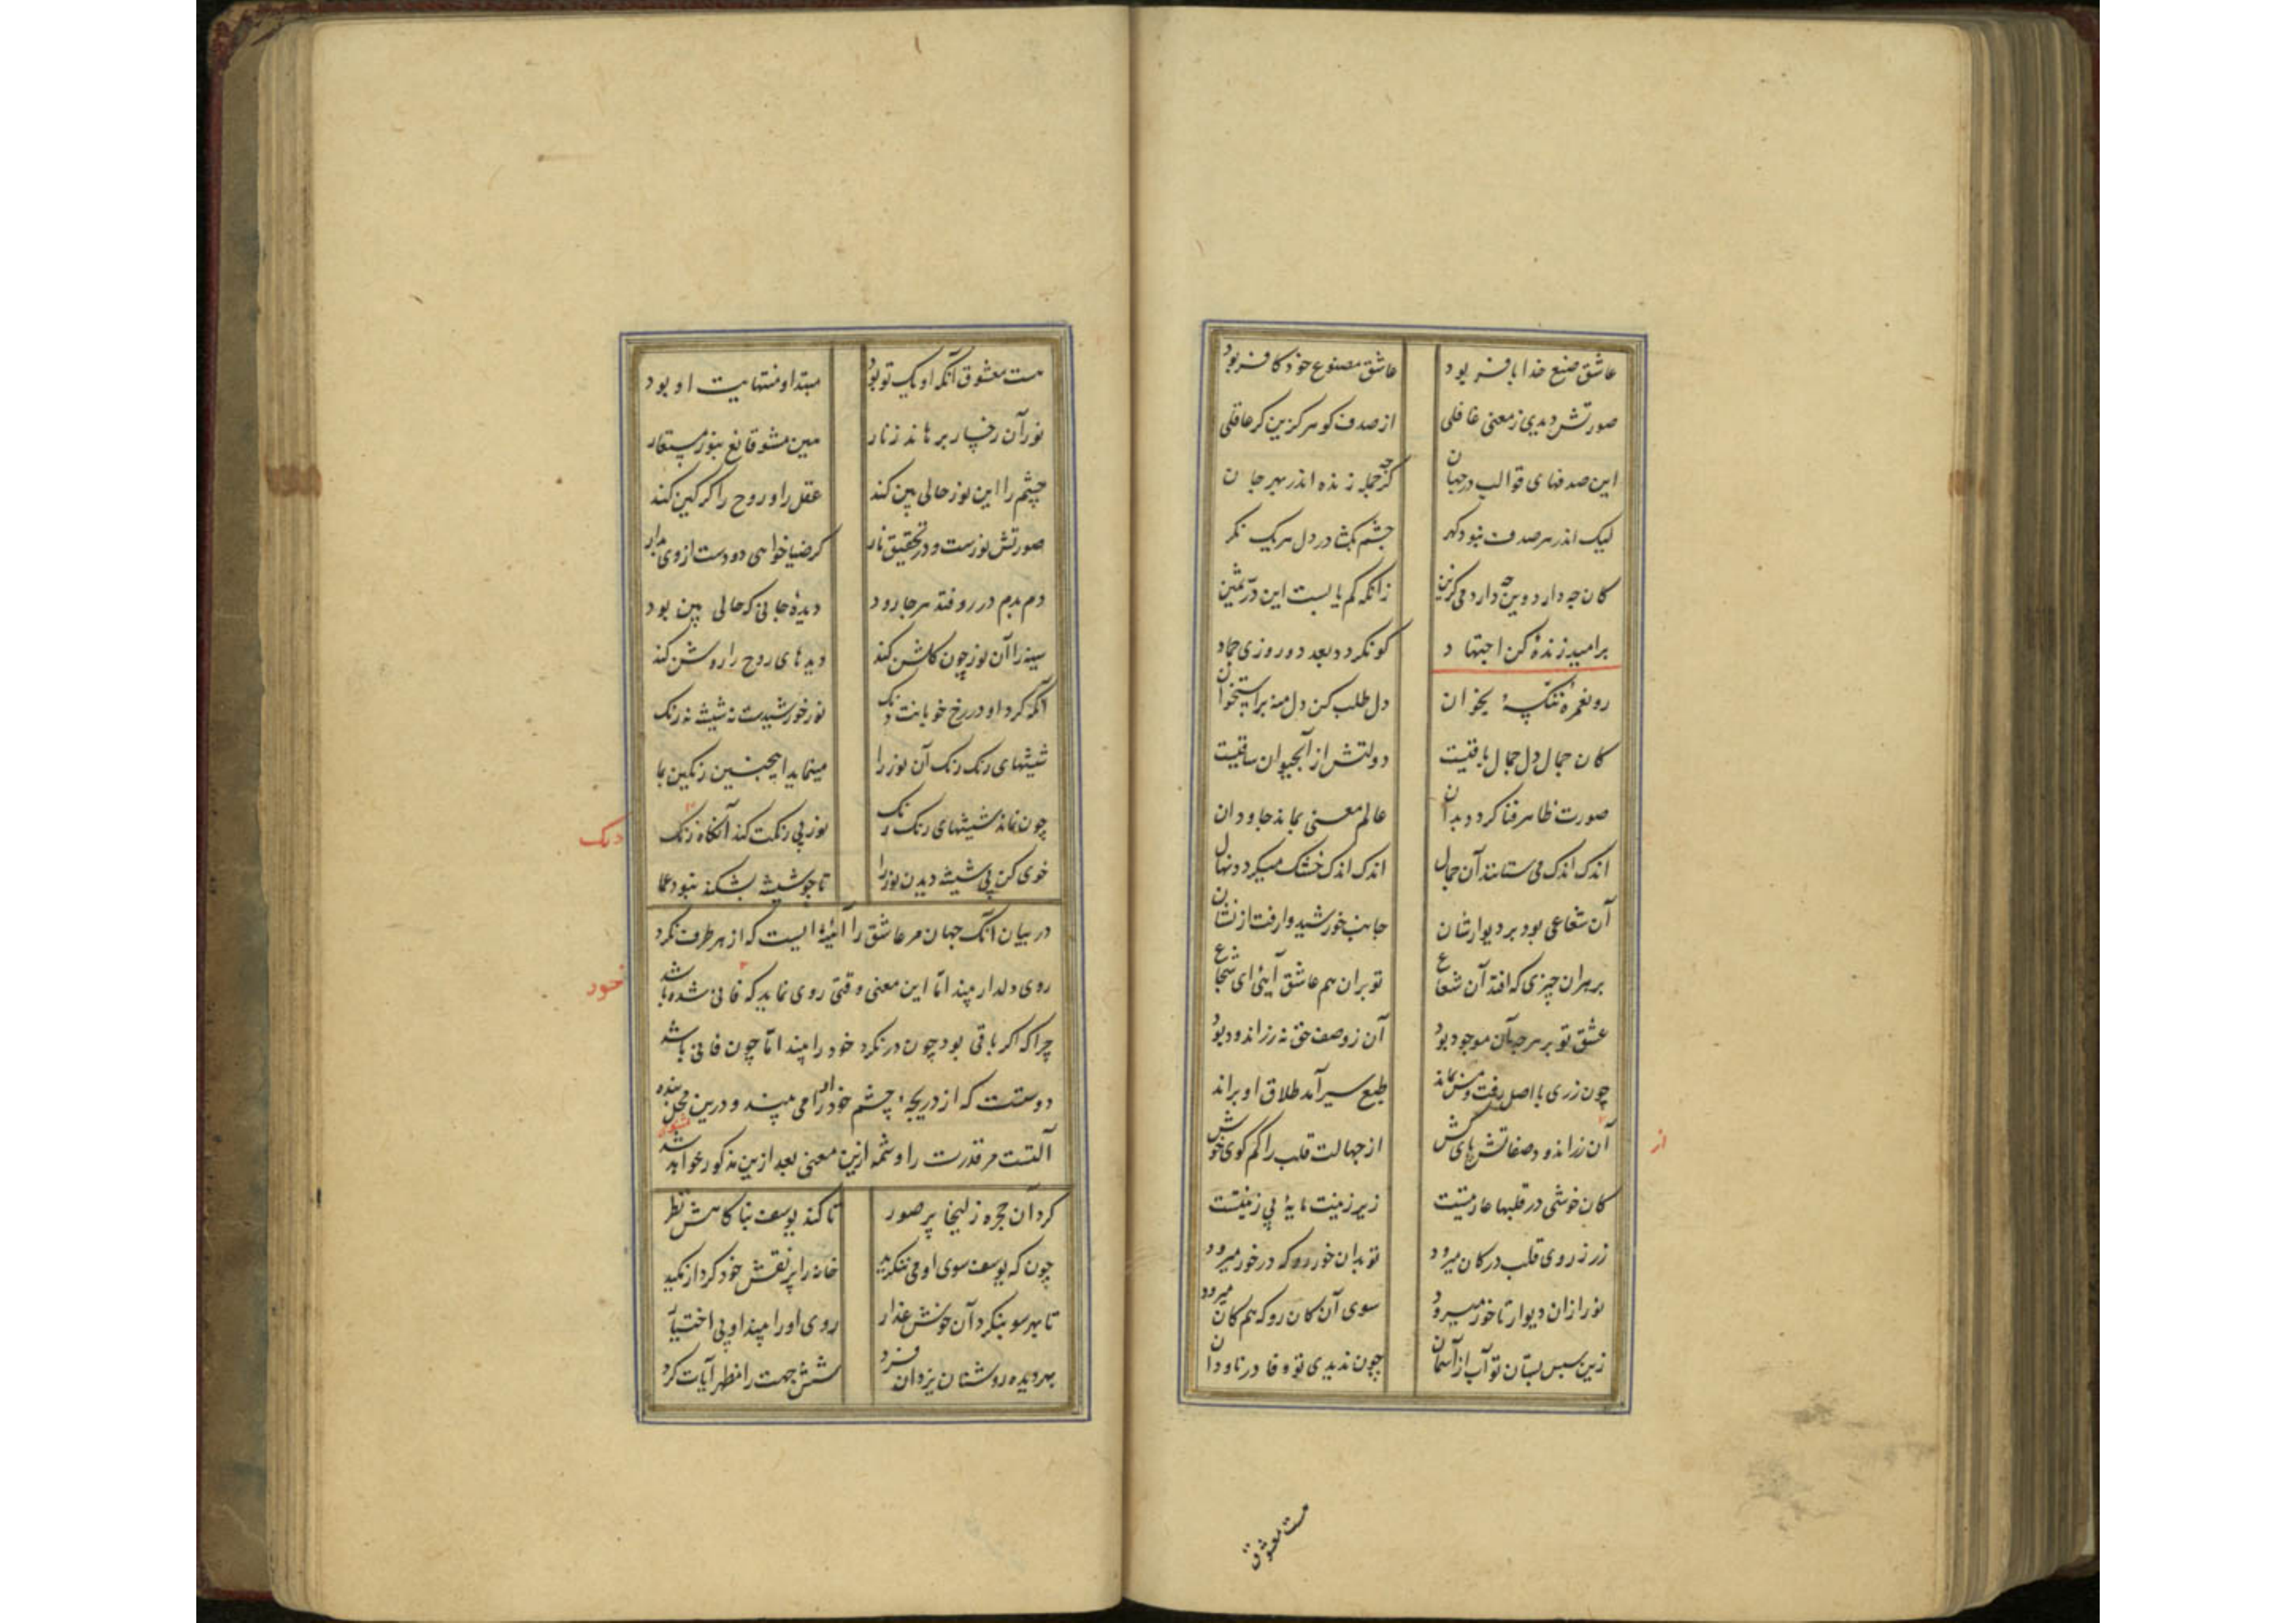 عاشق صنع خدا با فر بود عاشق مصنوع خود کافر بود
صورتش دیدی ز معنی غافلی از صدف کوهر کزین کر عاقلی
این صدفهای قوالب در جهان کرچه جمله زنده اند از بهر جان
لیک اندر هر صدف نبود کهر چشم بکشا در دل هر یک نکر
کان چه دارد وین چه دارد می کزین زانکه کم یابست این در ثمین
بر امید زندهٔ کن اجتهاد کو نکردد بعد دو روزی جماد
رو نعمره ننکسه بخوان دل طلب کن دل منه بر استخوان
کان جمال دل جمال باقیست دولتش از آب حیوان ساقیست
صورت ظاهر فنا کردد بدان عالم معنی بماند جاودان
اندک اندک می ستانند آن جمال اندک اندک خشک میکردد نهال
آن شعاعی بود بر دیوارشان جانب خورشید وارفت از نشان
بر هر آن چیزی که افتد آن شعاع تو بران هم عاشق آیی ای شجاع
عشق تو بر هرچه آن موجود بود آن ز وصف حق نه زر اندود بود
چون زری با اصل رفت و مس بماند طبع سیر آمد طلاق او براند
آن زر اندود صفاتش پای کش از جهالت قلب را کم کوی خوش
از
کان خوشی در قلبها عاریتیست زیر زینت مایهٔ بی زینتست
زر ز روی قلب در کان میرود تو بدان خور رو که در خور میرود
نور از آن دیوار تا خور میرود سوی آن کان رو که هم کان میرود
زین سپس بستان تو آب از آسمان چون ندیدی تو وفا در ناودان
هست معشوق
هست معشوق آنکه او یک تو بود مبتدا و منتهایت او بود
نور آن رخسار برهاند ز نار هین مشو قانع بنور مستعار
چشم را این نور حالی بین کند عقل را و روح را کرکین کند
صورتش نورست و در تحقیق نار کر ضیا خواهی دو دست از وی بدار
دم بدم در رو فتد هر جا رود دیدهٔ جانی که حالی بین بود
سینه را آن نور چون کلشن کند دیدهای روح را روشن کند
آنکه کرد او در رخ خوبانت دنک نور خورشیدست نه شیشه نه رنک
شیشهای رنک رنک آن نور را مینماید اینچنین رنکین بما
چون نماند شیشهای رنک رنک نور بی رنکت کند آنکاه رنک
دنک
خوی کن بی شیشه دیدن نور را تا چو شیشه بشکند نبود عما
در بیان آنک جهان مر عاشق را آئینهٔ ایست که از هر طرف نکرد
روی دلدار بیند اما این معنی وقتی روی نماید که فانی شده باشد
خود
چرا که اکر باقی بود چون در نکرد خود را بیند اما چون فانی باشد
دوستست که از دریچهٔ چشم خود را می بیند و درین محل بنده
آلتست مر قدرت را و شمهٔ ازین معنی بعد ازین مذکور خواهد شد
کرد آن حجره زلیخا پر صور تا کند یوسف بناکاهش نظر
چون که یوسف سوی او می ننکرید خانه را پر نقش خود کرد از مکید
تا بهر سو بنکرد آن خوش عذار روی او را بیند او بی اختیار
بهر دیده روشنان یزدان فرد شش جهت را مظهر آیات کرد